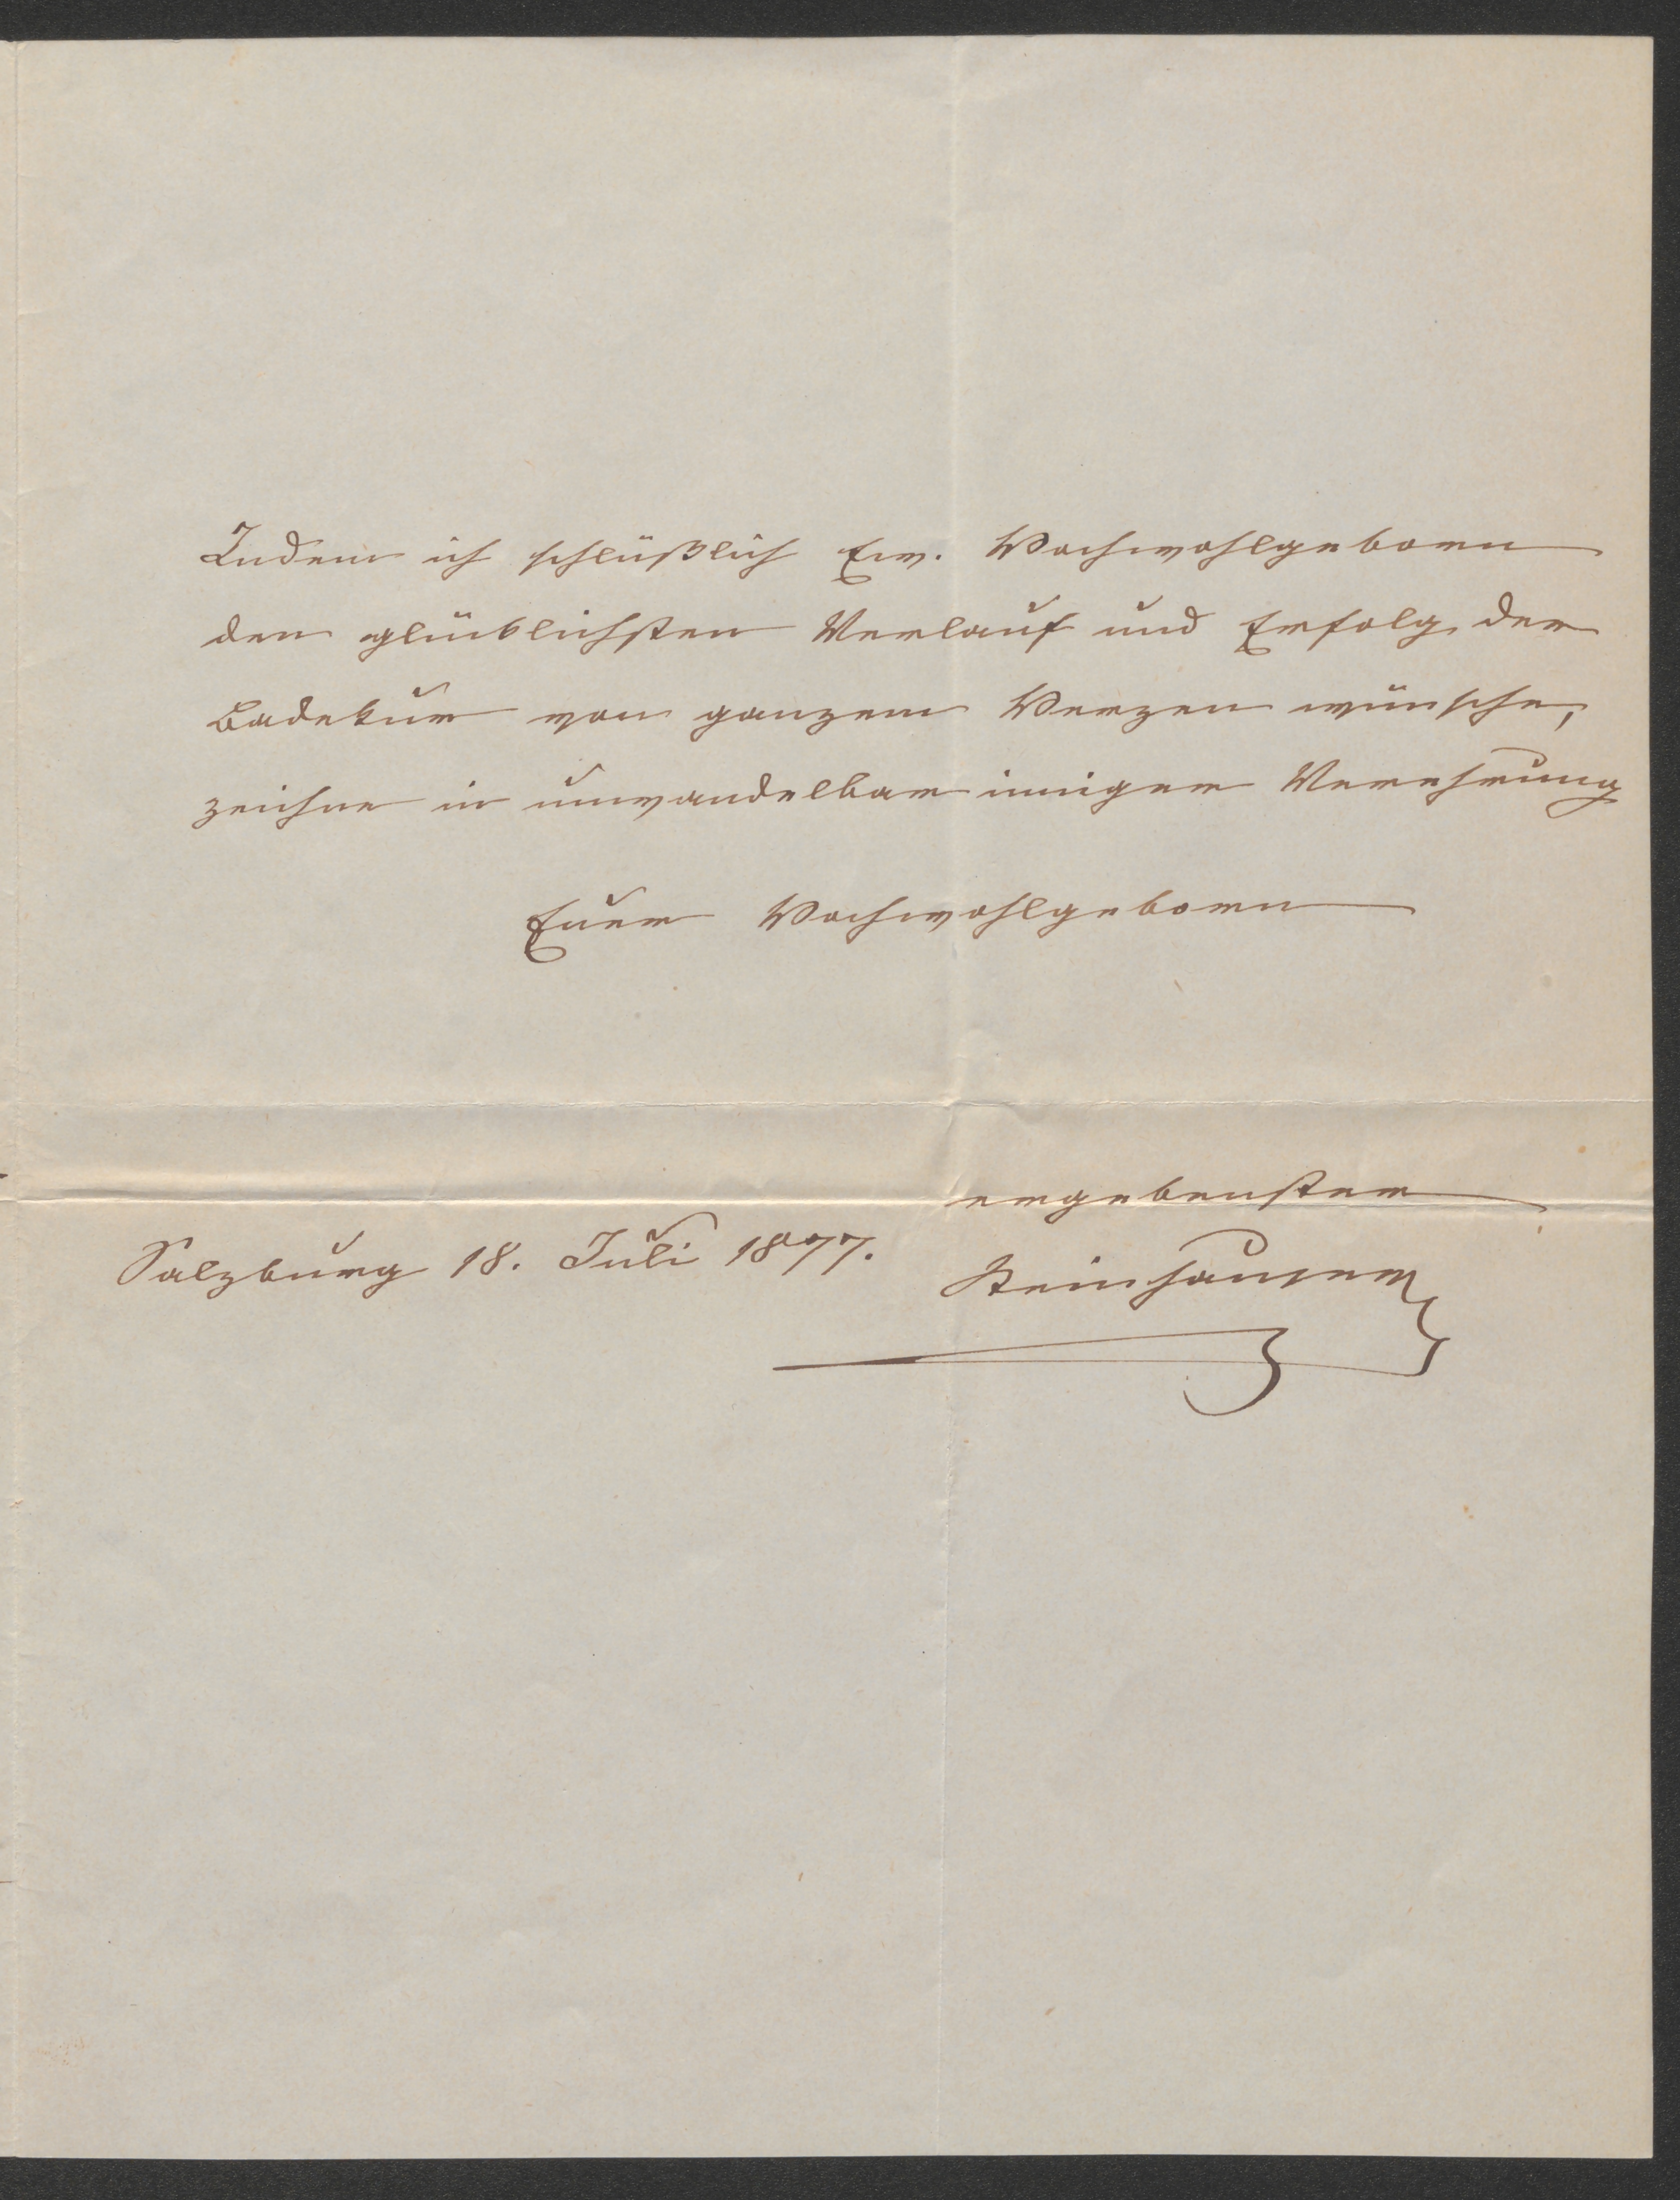 Indem ich schlüßlich Euer. Hochwohlgeborn
den glücklichsten Verlauf und Erfolg der
Badekur von ganzem Herzen wünsche,
zeichne in unwandelbar inniger Verehrung
Euer Hochwohlgeborn
ergebenster
Salzburg 18. Juli 1877.
Steinhauser